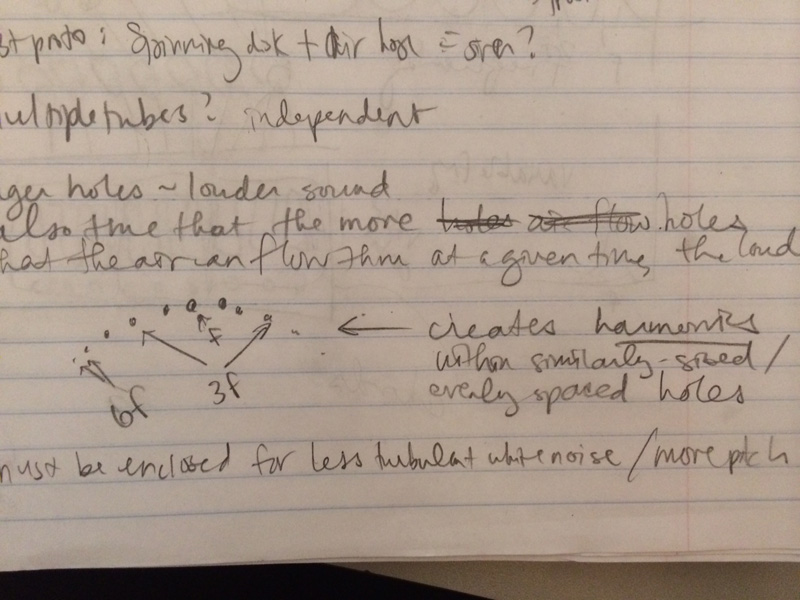 st proto: Spinning disk + Air hose = siren?
ultiple tubes? independent
ger holes ~ louder sound
also true that the more holes air flow holes
hat the air can flow thru at a given time, the loud
f
creates harmonics
within similarly-sized /
6f 3f evenly spaced holes
must be enclosed for less turbulat white noise / more pitch